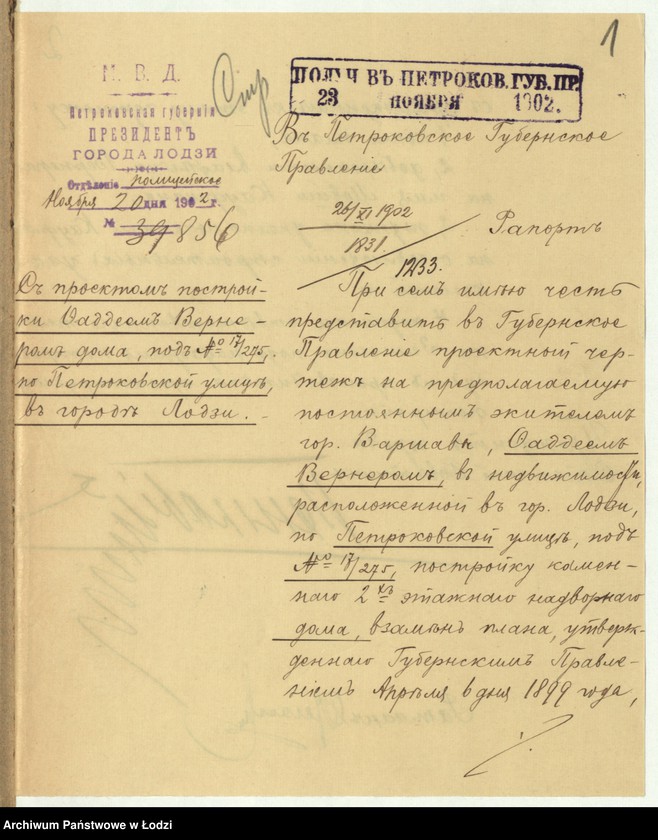 1
М. В. Д.
Петроковская губернія
ПРЕЗИДЕНТЪ
ГОРОДА ЛОДЗИ
Отдѣленіе полицейское
Ноября 20 дня 1902 г.
№ 39856
Стр
ПОЛУЧ ВЪ ПЕТРОКОВ. ГУБ. ПР.
23 НОЯБРЯ 1902.
Съ проектомъ построй-
ки Ѳаддеемъ Верне-
ромъ дома, подъ № 17/275,
по Петроковской улицѣ,
въ городѣ Лодзи.
Въ Петроковское Губернское
Правленіе
26/XI 1902
1831
1233.
Рапортъ
При семъ имѣю честь
представить въ Губернское
Правленіе проектный чер-
тежъ на предполагаемую
постояннымъ жителемъ
гор. Варшавы, Ѳаддеемъ
Вернеромъ, въ недвижимости,
расположенной въ гор. Лодзи,
по Петроковской улицѣ, подъ
№ 17/275, постройку камен-
наго 2хъ этажнаго надворнаго
дома, взамѣнъ плана, утверж-
деннаго Губернскимъ Правле-
ніемъ Апрѣля 6 дня 1899 года,
Archiwum Państwowe w Łodzi